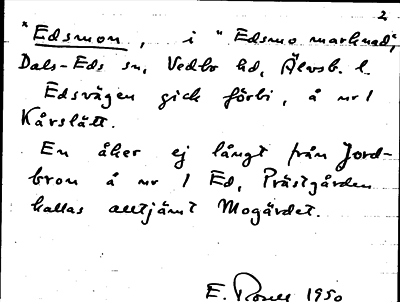 2
"Edsmon, i "Edsmo marknad",
Dals-Eds sn, Vedbo hd, Älvsb. l.
Edsvägen gick förbi, å nr 1
Kårslätt.
En åker ej långt från Jord-
bron å nr 1 Ed, Prästgården
kallas alltjämt Mogärdet.
E. Rosell 1950